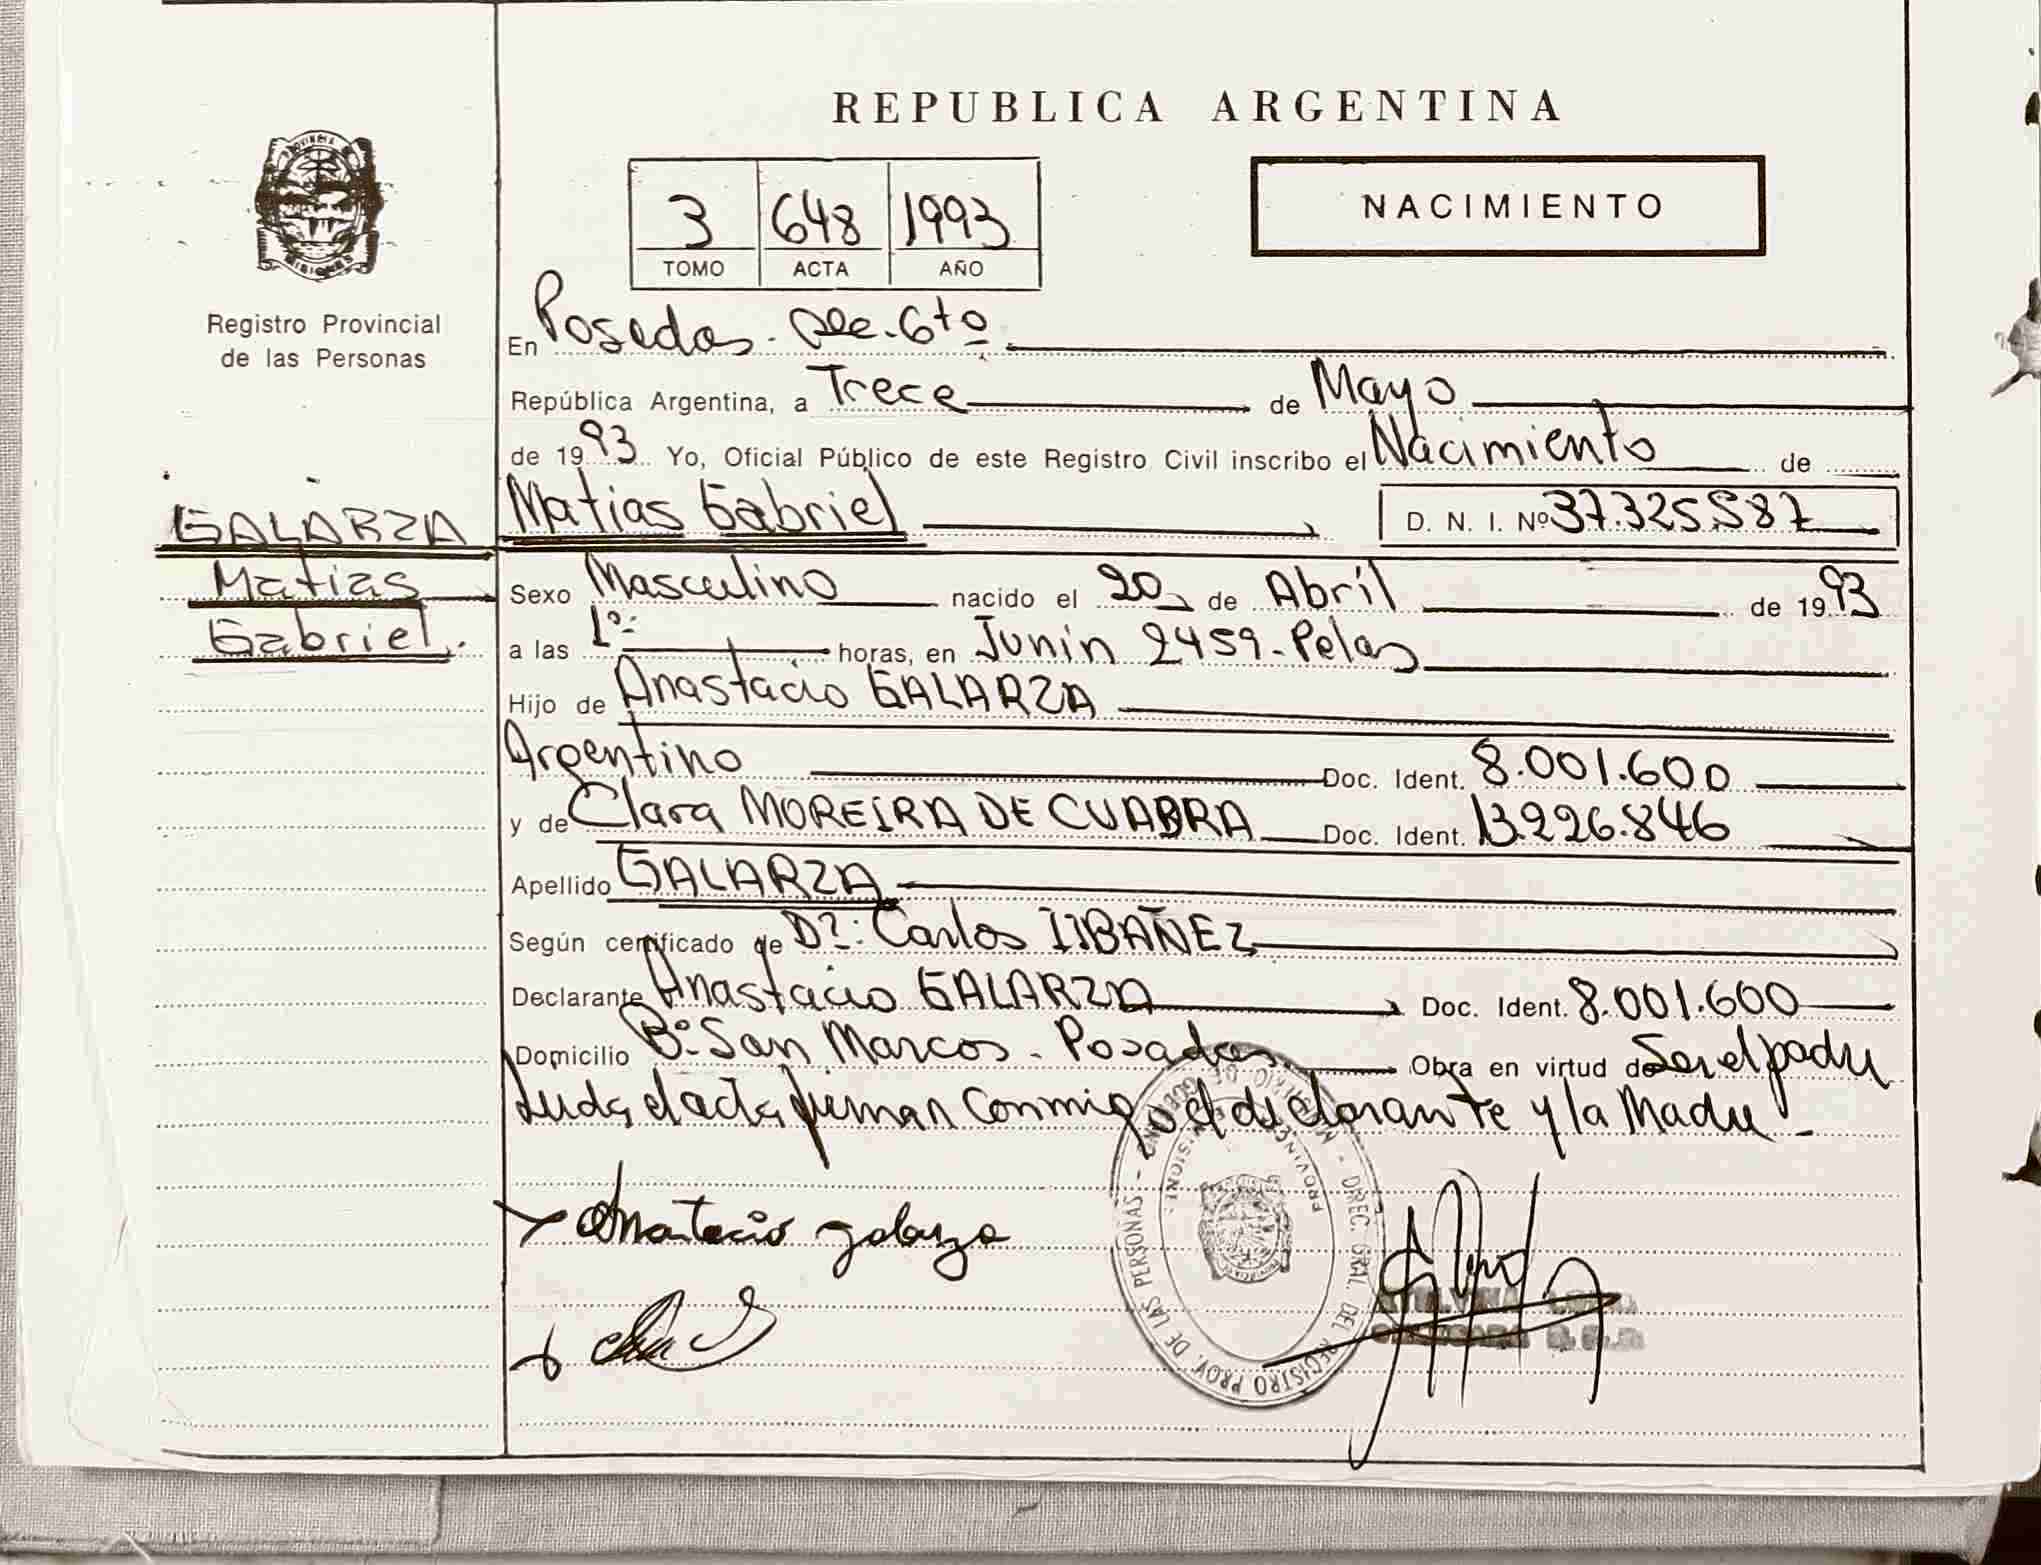 REPUBLICA ARGENTINA
NACIMIENTO
3 648 1993
TOMO ACTA AÑO
PROVINCIA DE
MISIONES
Registro Provincial
de las Personas
GALARZA
Matias
Gabriel.
En Posadas. Sec. 6to
República Argentina, a Trece de Mayo
de 1993 Yo, Oficial Público de este Registro Civil inscribo el Nacimiento de
Matias Gabriel D. N. I. Nº 37.325.587
Sexo Masculino nacido el 20 de Abril de 1993
a las 1º: horas, en Junin 2459-Pdas
Hijo de Anastacio GALARZA
Argentino Doc. Ident. 8.001.600
y de Clara MOREIRA DE CUABRA Doc. Ident. 13.226.846
Apellido GALARZA
Según certificado de Dr: Carlos IBAÑEZ
Declarante Anastacio GALARZA Doc. Ident. 8.001.600
Domicilio Bº San Marcos - Posadas. Obra en virtud de Ser el padre
Leida el acta firman conmigo el declarante y la Madre -
Anastacio galarza
MINISTERIO DE GOBIERNO - DIREC. GRAL. DEL REGISTRO PROV. DE LAS PERSONAS -
PROVINCIA DE MISIONES